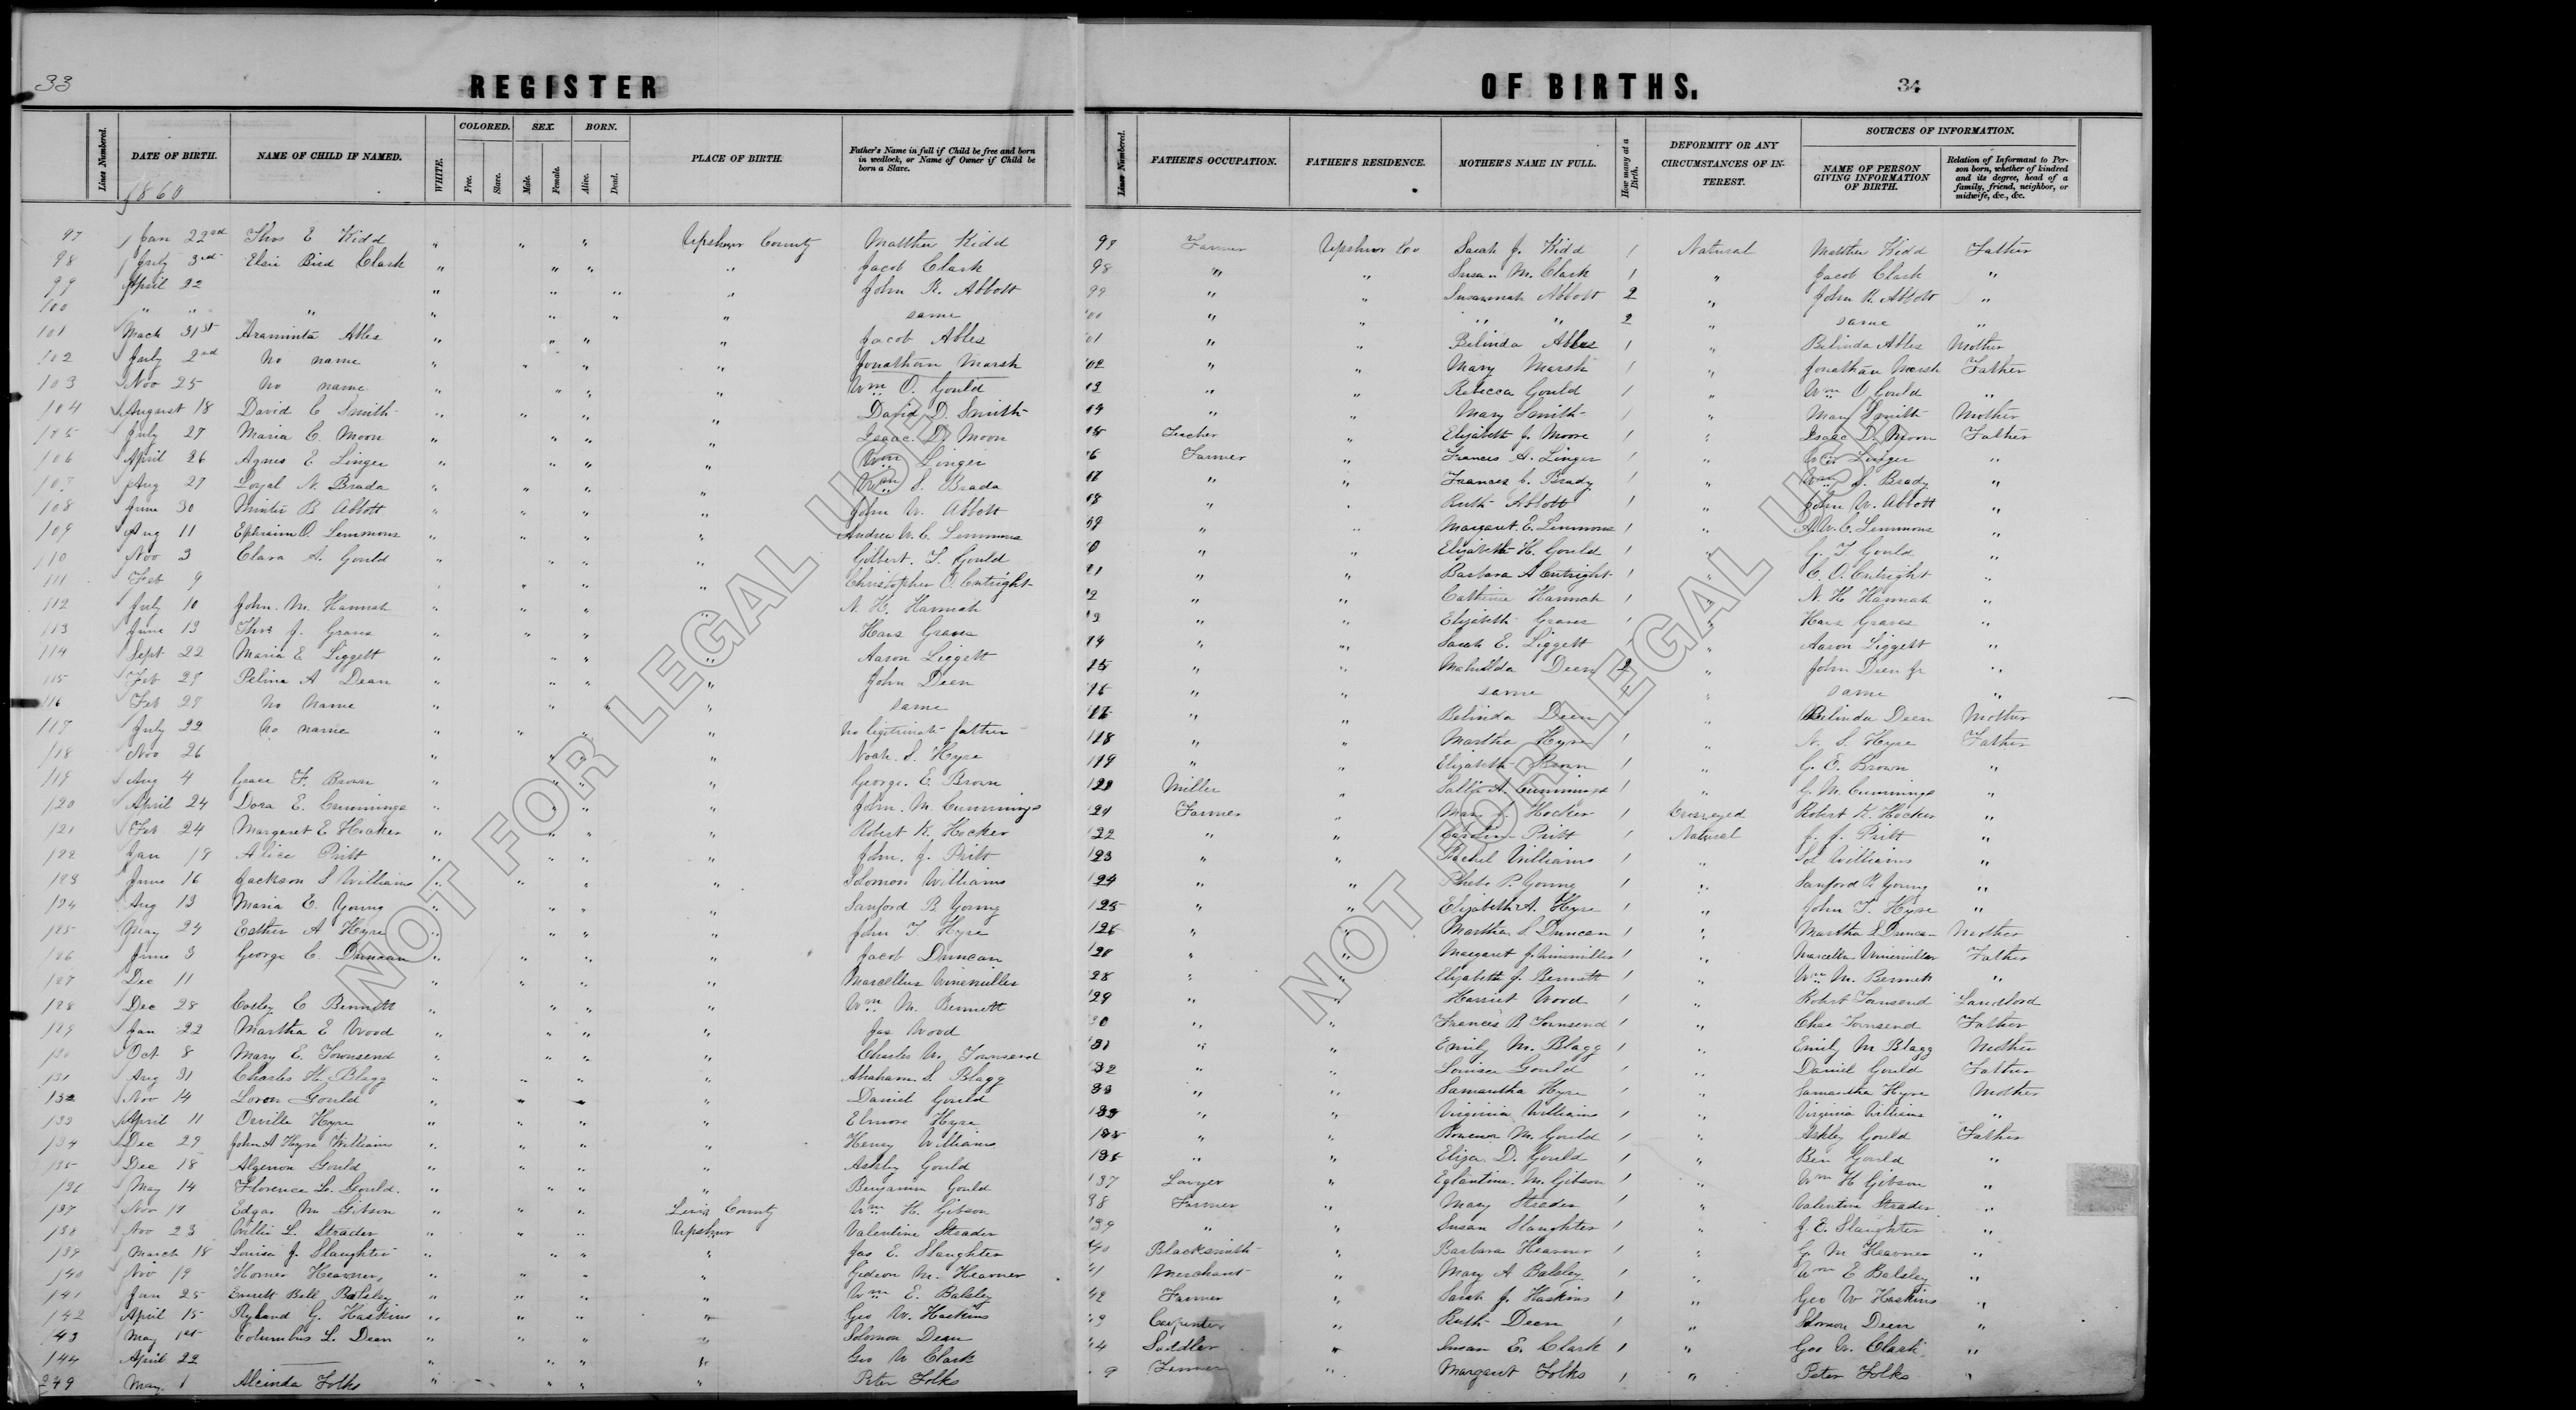 33
REGISTER
Lines Numbered. DATE OF BIRTH. NAME OF CHILD IF NAMED. WHITE. COLORED. Free. Slave. SEX. Male. Female. BORN. Alive. Dead. PLACE OF BIRTH. Father's Name in full if Child be free and born in wedlock, or Name of Owner if Child be born a Slave.
1860
97 Jan 22nd Thos E Kidd " " " Upshur County Matthew Kidd
98 July 3rd Elsie Bird Clark " " " " Jacob Clark
99 April 22 " " " " John R. Abbott
100 " " " " " " " same
101 Mach 31st Araminta Ables " " " " Jacob Ables
102 July 2nd No name " " " " Jonathan Marsh
103 Nov 25 No name " " " " Wm O. Gould
104 August 18 David C Smith " " " " David D. Smith
105 July 27 Maria C. Moon " " " " Isaac D. Moon
106 April 26 Agnes E Linger " " " " Wm Linger
107 Aug 27 Loyal N. Brada " " " " Wm S. Brada
108 June 30 Minter B Abbott " " " " John W. Abbott
109 Aug 11 Ephraim O. Lemmons " " " " Andrew W. C. Lemmons
110 Nov 3 Clara A. Gould " " " " Gilbert. T. Gould
111 Feb 9 " " " " Christopher O. Cutright
112 July 10 John. M. Hannah " " " " N. H. Hannah
113 June 13 Thos J. Graves " " " " Hans Graves
114 Sept 22 Maria E Liggett " " " " Aaron Liggett
115 Feb 27 Pelina A Dean " " " " John Deen
116 Feb 27 No Name " " " " same
117 July 22 No name " " " " No legitimate father
118 Nov 26 " " " " Noah. S. Hyre
119 Aug 4 Grace F. Brown " " " " George. E. Brown
120 April 24 Dora E. Cummings " " " " John. M. Cummings
121 Feb 24 Margaret E Hocker " " " " Robert K. Hocker
122 Jan 19 Alice Pritt " " " " John. J. Pritt
123 June 16 Jackson S Williams " " " " Solomon Williams
124 Aug 13 Maria E. Young " " " " Sanford B Young
125 May 24 Esther A Hyre " " " " John T. Hyre
126 June 3 George C. Duncan " " " " Jacob Duncan
127 Dec 11 " " " " Marcellus Winemiller
128 Dec 28 Cosby C Bennett " " " " Wm M. Bennett
129 Jan 22 Martha E Wood " " " " Jas Wood
130 Oct 8 Mary E. Townsend " " " " Charles W. Townsend
131 Aug 31 Charles H. Blagg " " " " Abraham. S. Blagg
132 Nov 14 Loron Gould " " " " Daniel Gould
133 April 11 Orville Hyre " " " " Elmore Hyre
134 Dec 29 John A Hyre Williams " " " " Henry Williams
135 Dec 18 Algernon Gould " " " " Ashley Gould
136 May 14 Florence L. Gould. " " " " Benjamin Gould
137 Nov 19 Edgar M Gibson " " " Lewis County Wm H. Gibson
138 Nov 23 Willie L. Strader " " " Upshur Valentine Strader
139 March 18 Louisa J. Slaughter " " " " Jas E. Slaughter
140 Nov 19 Homer Heavner " " " " Gideon M. Heavner
141 Jan 25 Everett Bell Balsley " " " " Wm E. Balsley
142 April 15 Ryland G. Haskins " " " " Geo W. Haskins
43 May 1st Columbus L. Dean " " " " Solomon Dean
144 April 22 " " " " Geo W Clark
249 May 1 Alcinda Folks " " " " Peter Folks
OF BIRTHS.
34
Lines Numbered. FATHER'S OCCUPATION. FATHER'S RESIDENCE. MOTHER'S NAME IN FULL. How many at a Birth. DEFORMITY OR ANY CIRCUMSTANCES OF INTEREST. SOURCES OF INFORMATION. NAME OF PERSON GIVING INFORMATION OF BIRTH. Relation of Informant to Person born, whether of kindred and its degree, head of a family, friend, neighbor, or midwife, &c., &c.
97 Farmer Upshur Co Sarah J. Kidd 1 Natural Matthew Kidd Father
98 " " Susan M. Clark 1 " Jacob Clark "
99 " " Susannah Abbott 2 " John R Abbott "
00 " " " " 2 " same "
01 " " Belinda Ables 1 " Belinda Ables Mother
02 " " Mary Marsh 1 " Jonathan Marsh Father
" " Rebecca Gould 1 " Wm O Gould "
04 " " Mary Smith 1 " Mary Smith Mother
05 Teacher " Elizabeth J. Moore 1 " Isaac D. Moon Father
6 Farmer " Frances A. Linger 1 " Wm Linger "
" " Frances C. Brady 1 " Wm S. Brady "
08 " " Ruth Abbott 1 " John W. Abbott "
09 " " Margaret. E. Lemmons 1 " A. W. C. Lemmons "
0 " " Elizabeth H. Gould 1 " G. T. Gould "
" " Barbara A Cutright 1 " C. O. Cutright "
2 " " Catherine Hannah 1 " N. H. Hannah "
3 " " Elizabeth Graves 1 " Hans Graves "
14 " " Sarah E. Liggett 1 " Aaron Liggett "
15 " " Mahulda Deen 2 " John Deen Jr "
16 " " same " same "
" " Belinda Deen 1 " Belinda Deen Mother
118 " " Martha Hyre 1 " N. S. Hyre Father
119 " " Elizabeth Brown 1 " G. E. Brown "
120 Miller " Sallie A. Cummings 1 " G. M. Cummings "
121 Farmer " Hocker 1 Robert K. Hocker "
22 " " Pritt 1 Natural J. J. Pritt "
123 " " Rachel Williams 1 " Sol Williams "
124 " " Phebe P. Young 1 " Sanford B. Young "
125 " " Elizabeth A. Hyre 1 " John T. Hyre "
126 " " Martha S Duncan 1 " Martha S Duncan Mother
" " Margaret J. Winemiller 1 " Marcellus Winemiller Father
128 " " Elizabeth J. Bennett 1 " Wm M. Bennett "
129 " " Harriet Wood 1 " Robert Townsend Landlord
30 " " Frances B Townsend 1 " Chas Townsend Father
31 " " Emily M. Blagg 1 " Emily M Blagg Mother
132 " " Louisa Gould 1 " Daniel Gould Father
33 " " Samantha Hyre 1 " Samantha Hyre Mother
" " Virginia Williams 1 " Virginia Williams "
135 " " Rowena M. Gould 1 " Ashley Gould Father
136 " " Eliza D. Gould 1 " Ben Gould "
137 Lawyer " Eglantine. M. Gibson 1 " Wm H Gibson "
38 Farmer " Mary Strader 1 " Valentine Strader "
139 " " Susan Slaughter 1 " J. E. Slaughter "
140 Blacksmith " Barbara Heavner 1 " G. M Heavner "
41 Merchant " Mary A Balsley 1 " Wm E Balsley "
42 Farmer " Sarah J. Haskins 1 " Geo W Haskins "
43 Carpenter " Ruth Deen 1 " Solomon Deen "
44 Saddler " Susan E. Clark 1 " Geo W. Clark "
9 Farmer " Margaret Folks 1 " Peter Folks "
NOT FOR LEGAL USE
NOT FOR LEGAL USE